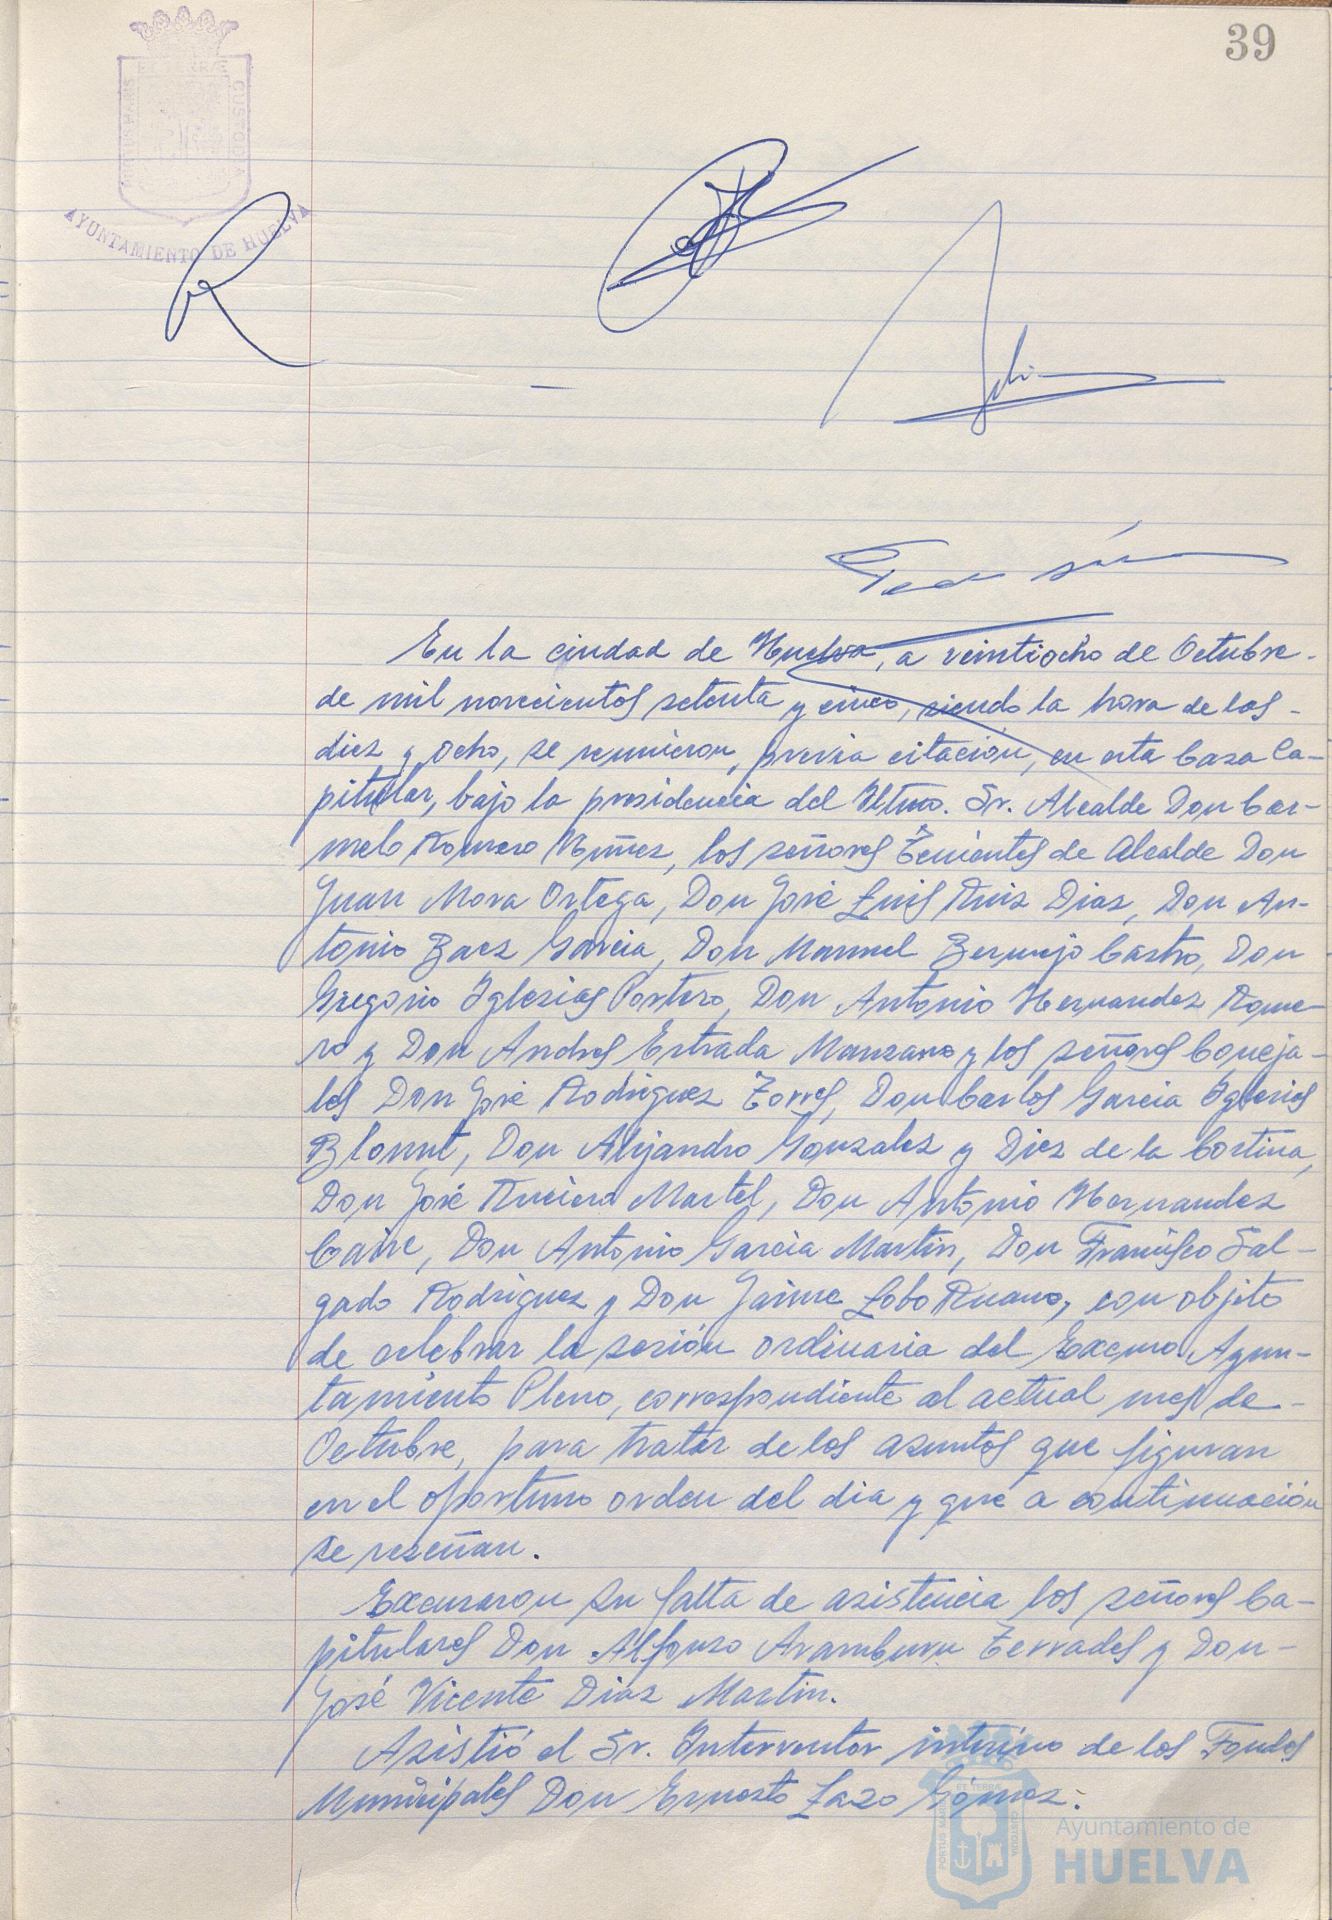 39
ET TERRÆ
PORTUS MARIS
CUSTODIA
AYUNTAMIENTO DE HUELVA
En la ciudad de Huelva, a veintiocho de Octubre-
de mil novecientos setenta y cinco, siendo la hora de las-
diez y ocho, se reunieron, previa citación, en esta Casa Ca-
pitular, bajo la presidencia del Iltmo. Sr. Alcalde Don Car-
melo Romero Núñez, los señores Tenientes de Alcalde Don
Juan Mora Ortega, Don José Luis Ruiz Diaz, Don An-
tonio Baez Garcia, Don Manuel Bermejo Castro, Don
Gregorio Iglesias Portero, Don Antonio Hernandez Rome-
ro y Don Andres Estrada Manzano y los señores Conceja-
les Don José Rodriguez Torres, Don Carlos Garcia Iglesias
Don Alejandro Gonzalez y Diez de la Cortina,
Don José Martel, Don Antonio Hernandez
Don Antonio Garcia Martin, Don Francisco Sal-
gado Rodriguez y Don Jaime Lobo Ruano, con objeto
de celebrar la sesión ordinaria del Excmo. Ayun-
tamiento Pleno, correspondiente al actual mes de-
Octubre, para tratar de los asuntos que figuran
en el oportuno orden del dia y que a continuación
se reseñan.
Excusaron su falta de asistencia los señores Ca-
pitulares Don Alfonso Aramburu Terrades y Don-
José Vicente Diaz Martin.
Asistió el Sr. Interventor interino de los Fondos
Municipales Don Ernesto Lazo Gómez.
ET TERRÆ
PORTUS MARIS
CUSTODIA
Ayuntamiento de
HUELVA